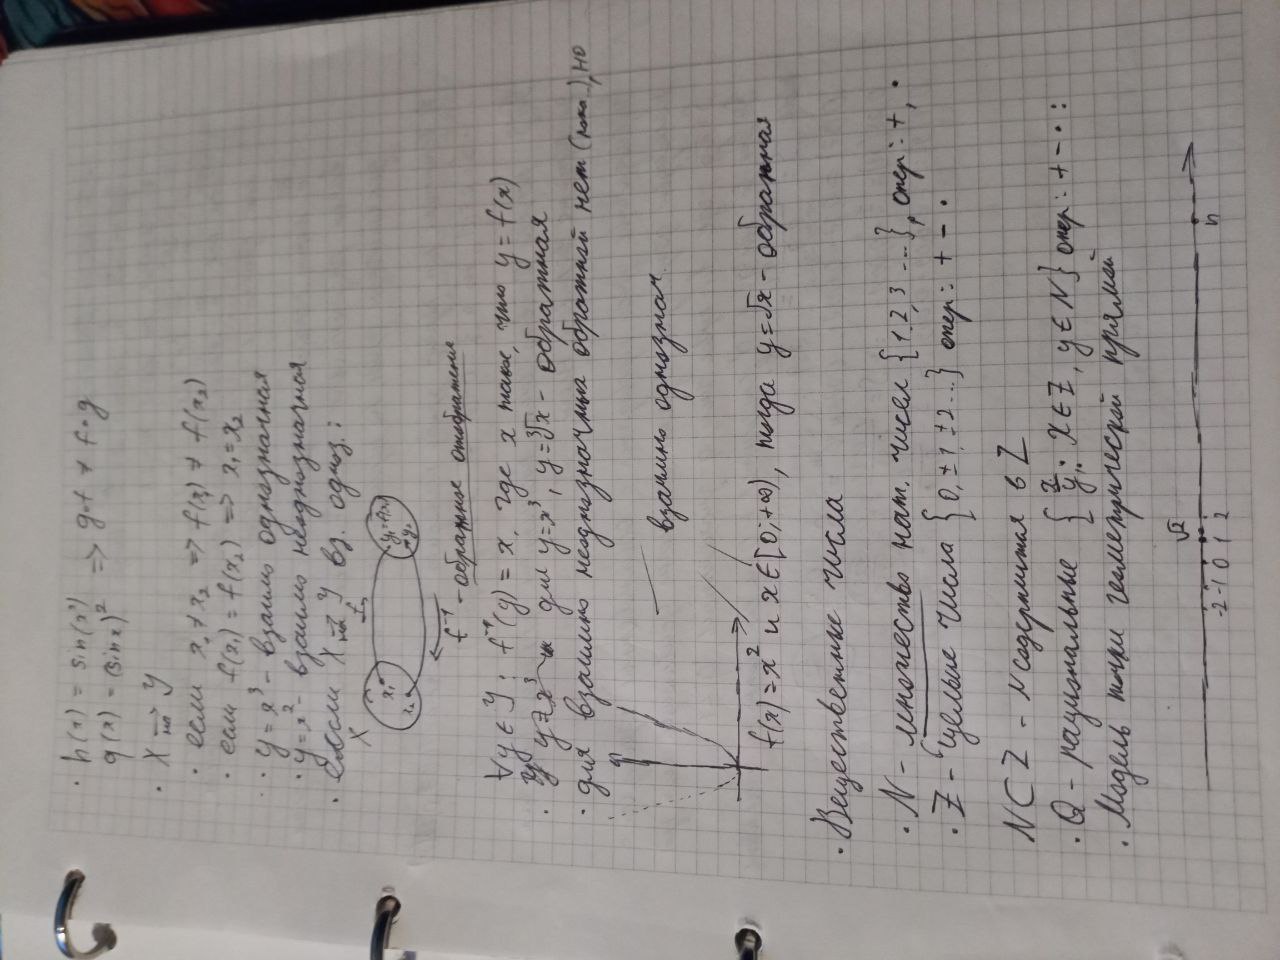 · h(x) = sin(x²)
q(x) = (sinx)² => g∘f ≠ f∘g
· X →на Y
· если x₁ ≠ x₂ => f(x₁) ≠ f(x₂)
· если f(x₁) = f(x₂) => x₁ = x₂
· y = x³ - взаимо однозначная
· y = x² - взаимо неоднозначная
· если X →на Y вз. одноз.:
X f
x₁ y₁=f(x₁)
x₂ y₂
f⁻¹ - обратное отображение
∀y ∈ Y: f⁻¹(y) = x, где x такое, что y = f(x)
· для y=x³, y=∛x - обратная
· для взаимно неоднозначных обратной нет (пока...), но
взаимно однознач.
f(x) = x² и x∈[0;+∞), тогда y=√x - обратная
· Вещественные числа
· N - множество нат. чисел {1,2,3 ...}, опер: +, ·
· Z - целые числа {0, ±1, ±2...} опер: + - ·
N⊂Z - N содержится в Z
· Q - рациональные {x/y; X∈Z, y∈N} опер: + - · :
· Модель точки геометрической прямой
√2
-2 -1 0 1 2 n